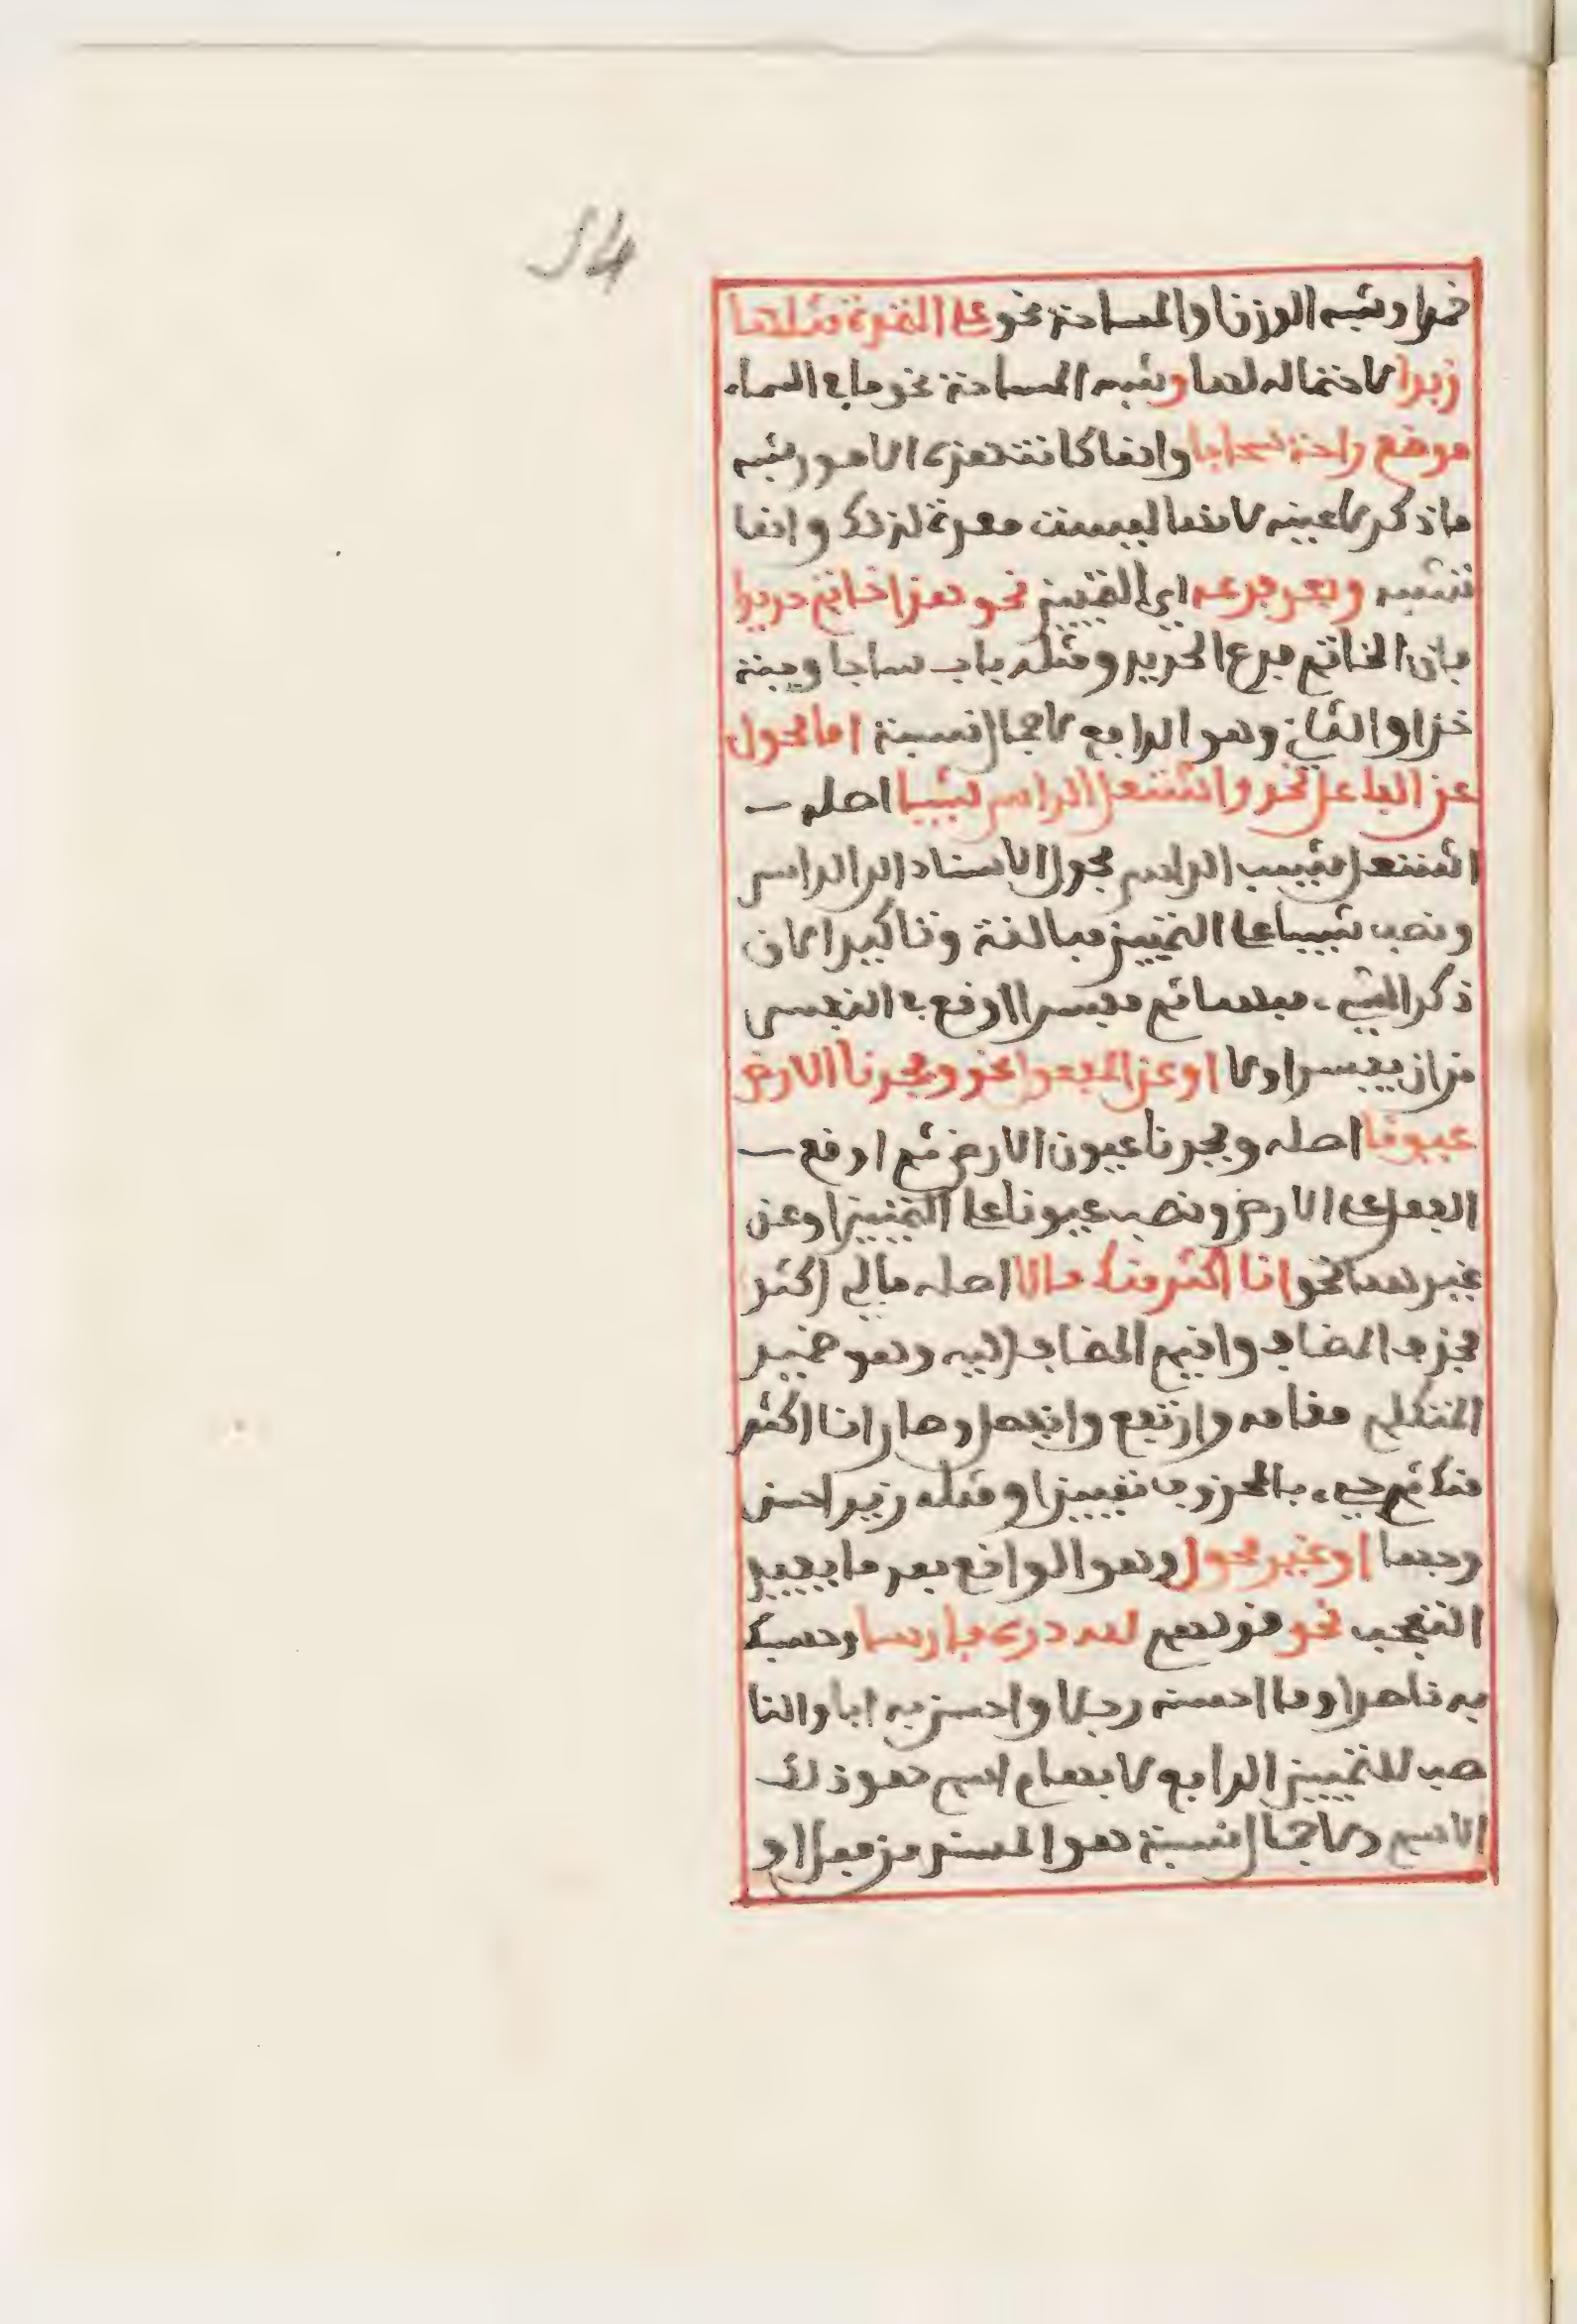 54
خمرا وشبه الوزن او المساحة نحو على التمرة مثلها
زبدا لاحتماله لهما وشبه المساحة نحو ما في السماء
موضع راحة سحابا وانما كانت هذه الامور شبه
ما ذكر لا عينه لانها ليست معدة لذلك وانما
تشبه وبعد فرعه اي التمييز نحو هذا خاتم حديدا
فان الخاتم فرع الحديد ومثله باب ساجا وجبة
خزا والثاني وهو الرافع لاجمال نسبة اما محول
عن الفاعل نحو واشتعل الراس شيبا اصله
اشتعل شيب الراس فحول الاسناد الى الراس
ونصب شيبا على التمييز مبالغة وتاكيدا لان
ذكر الشيء مبهما ثم مفسرا اوقع في النفس
من ان يفسر اولا او عن المفعول نحو وفجرنا الارض
عيونا اصله وفجرنا عيون الارض ثم اوقع
الفعل على الارض ونصب عيونا على التمييز او عن
غيرهما نحو انا اكثر منك مالا اصله مالي اكثر
فحذف المضاف واقيم المضاف اليه وهو ضمير
المتكلم مقامه وارتفع وانفصل وصار انا اكثر
منك ثم جيء بالمحذوف تمييزا ومثله زيد احسن
وجها او غير محول وهو الواقع بعد ما يفيد
التعجب نحو قولهم لله دره فارسا وحسبك
به ناصرا وما احسنه رجلا واحسن به ابا والنا
صب للتمييز الرافع لابهام اسم هو ذلك
الاسم ولاجمال نسبة هو المسند من فعل او